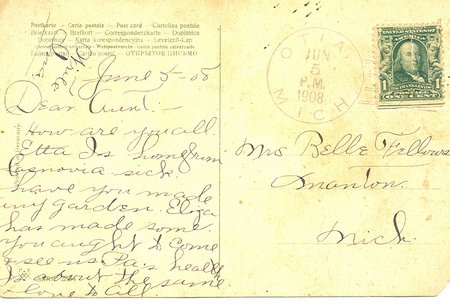 Postkarte — Carte postale — Post card — Cartolina postale
Briefkort — Brefkort — Correspondenzkarte — Dopisnica
Dopisnice — Karta korespondencyjna — Levelező-Lap
ОТКРЫТОЕ ПИСЬМО
June 5-08
Dear Aunt-
How are you all.
Etta Is home from
Casnovia sick
have you made
my garden. Eliza
has made some
you aught to come
& see us Pa's health
Is about the same
Love to all
JUN
5
P.M.
1908
MICH
1
ONE CENT
Mrs Belle Fellows
Mich.